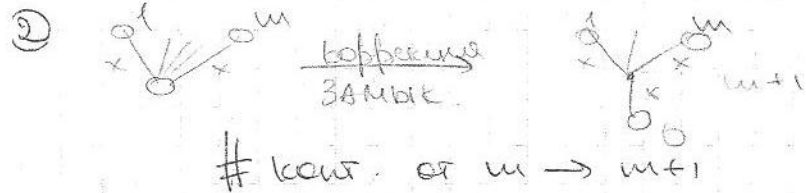 ②
1 m
x x
коррекция
ЗАМЫК.
1 m
x x
x m+1
# конт. от m → m+1